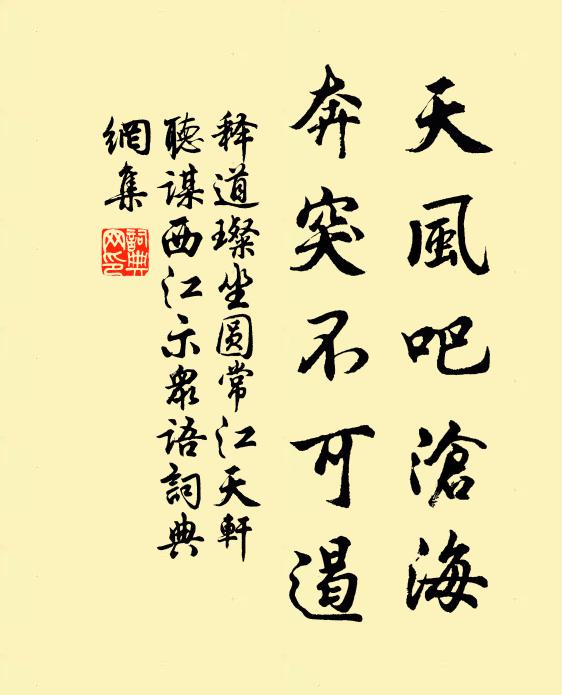 天風吧滄海
奔突不可遏
释道璨坐圆常江天軒
聽謀西江示眾語詞典
網集
詞典網印